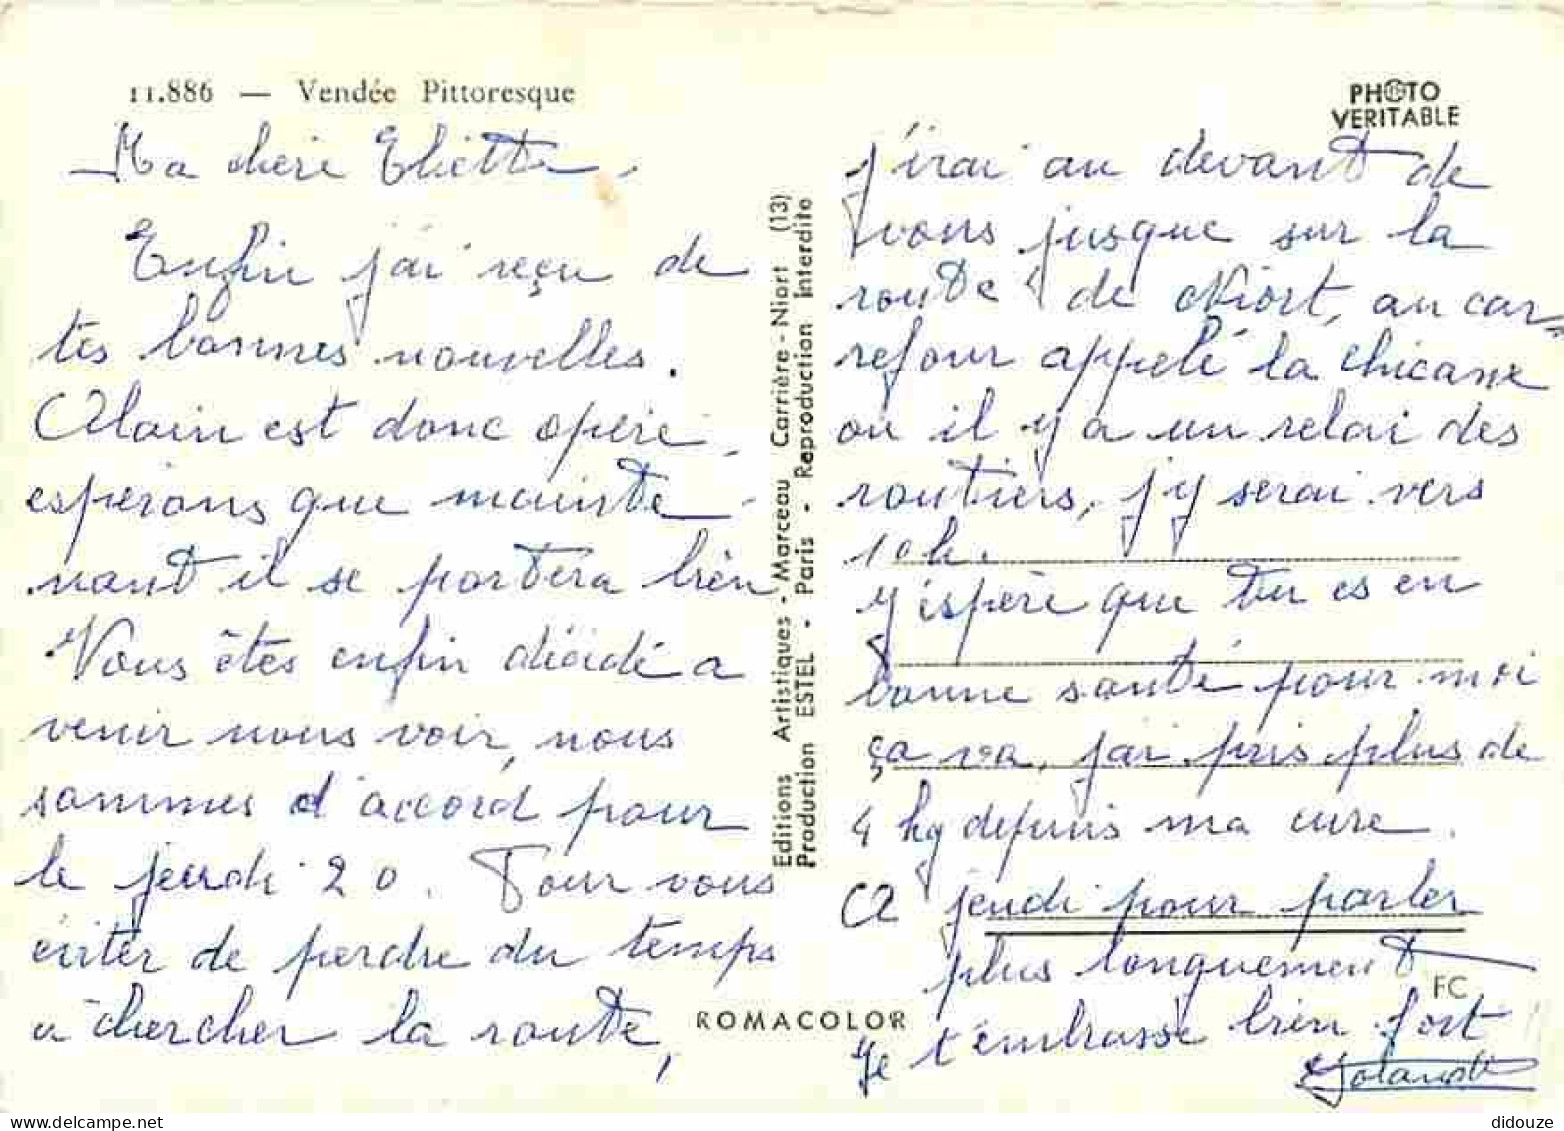 11.886 — Vendée Pittoresque
Ma chère Eliette.
Enfin j'ai reçu de
tes bonnes nouvelles.
Alain est donc opéré,
espérons que mainte-
nant il se portera bien
Vous êtes enfin décidé a
venir nous voir, nous
sommes d'accord pour
le jeudi 20. Pour vous
éviter de perdre du temps
a chercher la route,
Editions Artistiques - Marceau Carrière - Niort (13)
Production ESTEL - Paris - Reproduction Interdite
ROMACOLOR
PHOTO
VERITABLE
j'irai au devant de
vous jusque sur la
route de Niort, au car-
refour appelé la chicane
ou il y a un relai des
routiers, j'y serai vers
10h.
J'espère que tu es en
bonne santé pour moi
ça va, j'ai pris plus de
4 kg depuis ma cure.
jeudi pour parler
plus longuement
FC
Je t'embrasse bien fort
Yolande
didouze